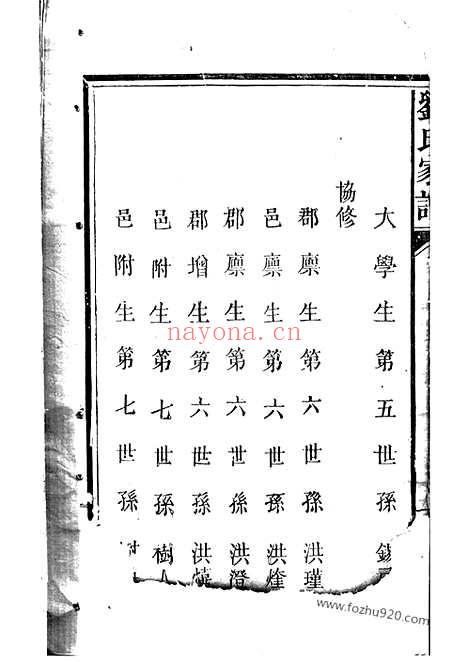 劉氏家譜
大學生第五世孫
協修
郡廪生第六世孫洪瑾
邑廪生第六世孫洪煃
郡廪生第六世孫洪澄
郡增生第六世孫洪
邑附生第七世孫樹
邑附生第七世孫
nayona.cn
www.fozhu920.com